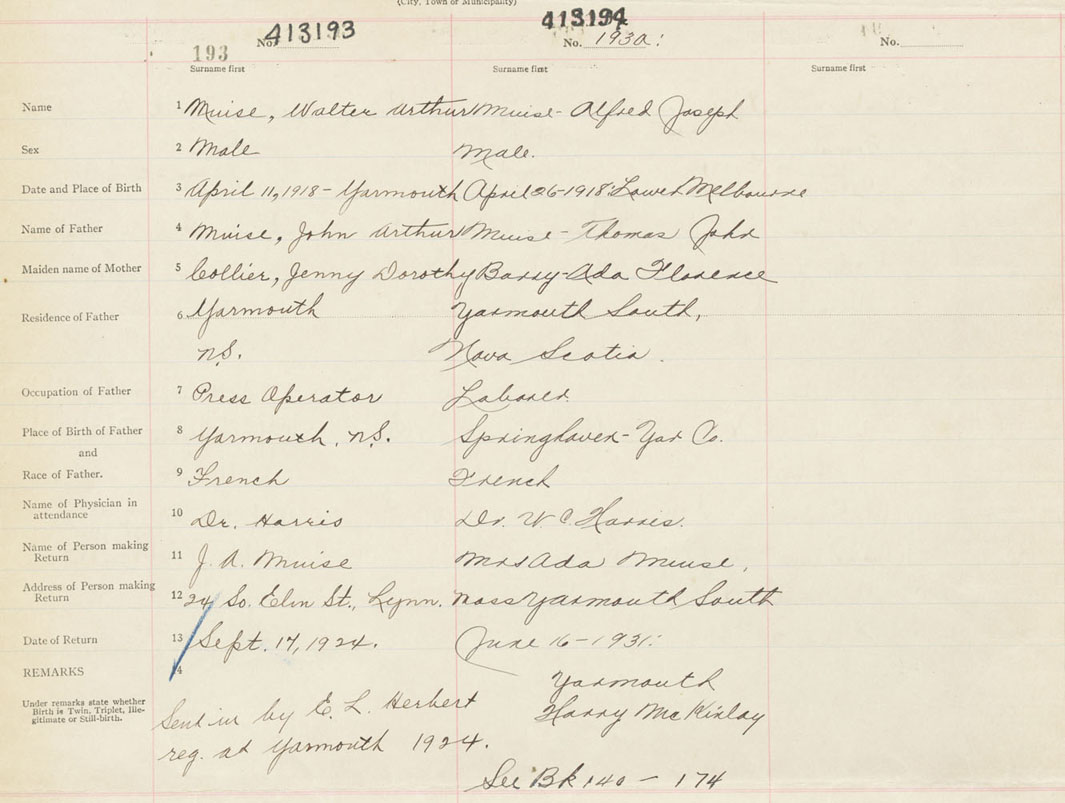 (City, Town or Municipality)
413193 413194
193 No. No. 193a: No.
Surname first Surname first Surname first
Name 1 Muise, Walter Arthur Muise- Alfred Joseph
Sex 2 Male Male.
Date and Place of Birth 3 April 11, 1918 - Yarmouth April 26-1918: Lower Melbourne
Name of Father 4 Muise, John Arthur Muise- Thomas John
Maiden name of Mother 5 Collier, Jenny Dorothy Barry-Ada Florence
Residence of Father 6 Yarmouth Yarmouth South,
N.S. Nova Scotia.
Occupation of Father 7 Press Operator Laborer.
Place of Birth of Father 8 Yarmouth, N.S. Springhaven- Yar Co.
and
Race of Father. 9 French French
Name of Physician in
attendance 10 Dr. Harris Dr. W C Harris.
Name of Person making
Return 11 J. A. Muise Mrs Ada Muise.
Address of Person making
Return 12 24 So. Elm St., Lynn. Mass Yarmouth South
Date of Return 13 Sept. 17, 1924. June 16-1931:
REMARKS 14
Yarmouth
Under remarks state whether
Birth is Twin, Triplet, Ille-
gitimate or Still-birth.
Send in by E. L. Herbert Harry McKinlay
reg. at Yarmouth 1924.
See Bk 140 - 174